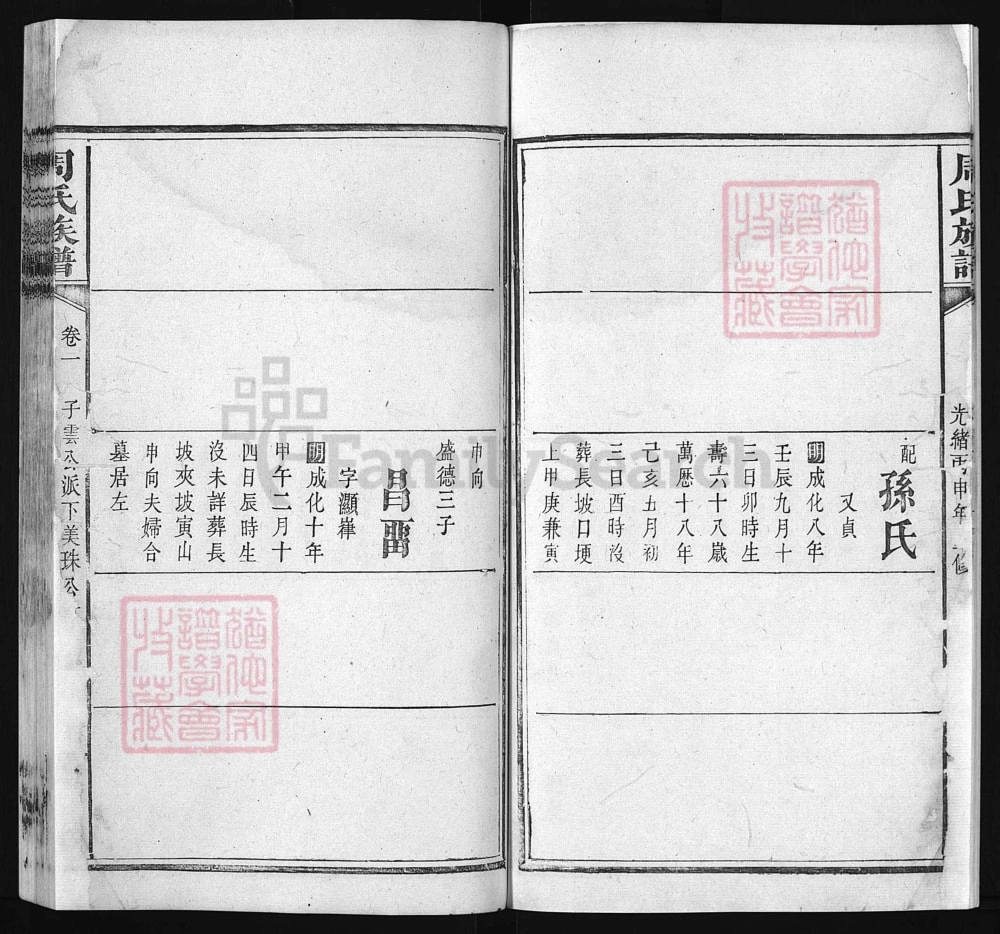 周氏族譜
光緒丙申年
配
孫氏
又貞
明成化八年
壬辰九月十
三日卯時生
壽六十八歲
萬厯十八年
己亥五月初
三日酉時沒
葬長坡口埂
上申庚兼寅
申向
盛德三子
昌
字灝嵂
明成化十年
甲午二月十
四日辰時生
沒未詳葬長
坡夾坡寅山
申向夫婦合
墓居左
周氏族譜
卷一
子雲公派下美珠公
猶他家
譜學會
收藏
猶他家
譜學會
收藏
FamilySearch